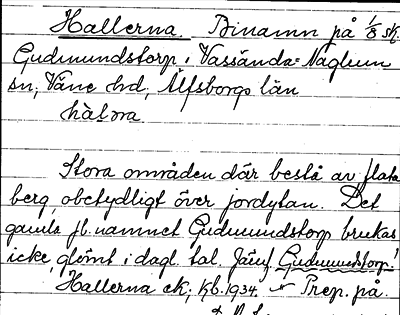 Hallerna. Binamn på 1/8 sk.
Gudmundstorp i Vassända-Naglum
sn, Väne hd, Älfsborgs län
hàlơna
Stora områden där bestå av flata
berg, obetydligt över jordytan. Det
gamla jb.namnet Gudmundstorp brukas
icke, glömt i dagl. tal. Jämf. Gudmundstorp!
Hallerna ek; kb. 1934. Prep. på.